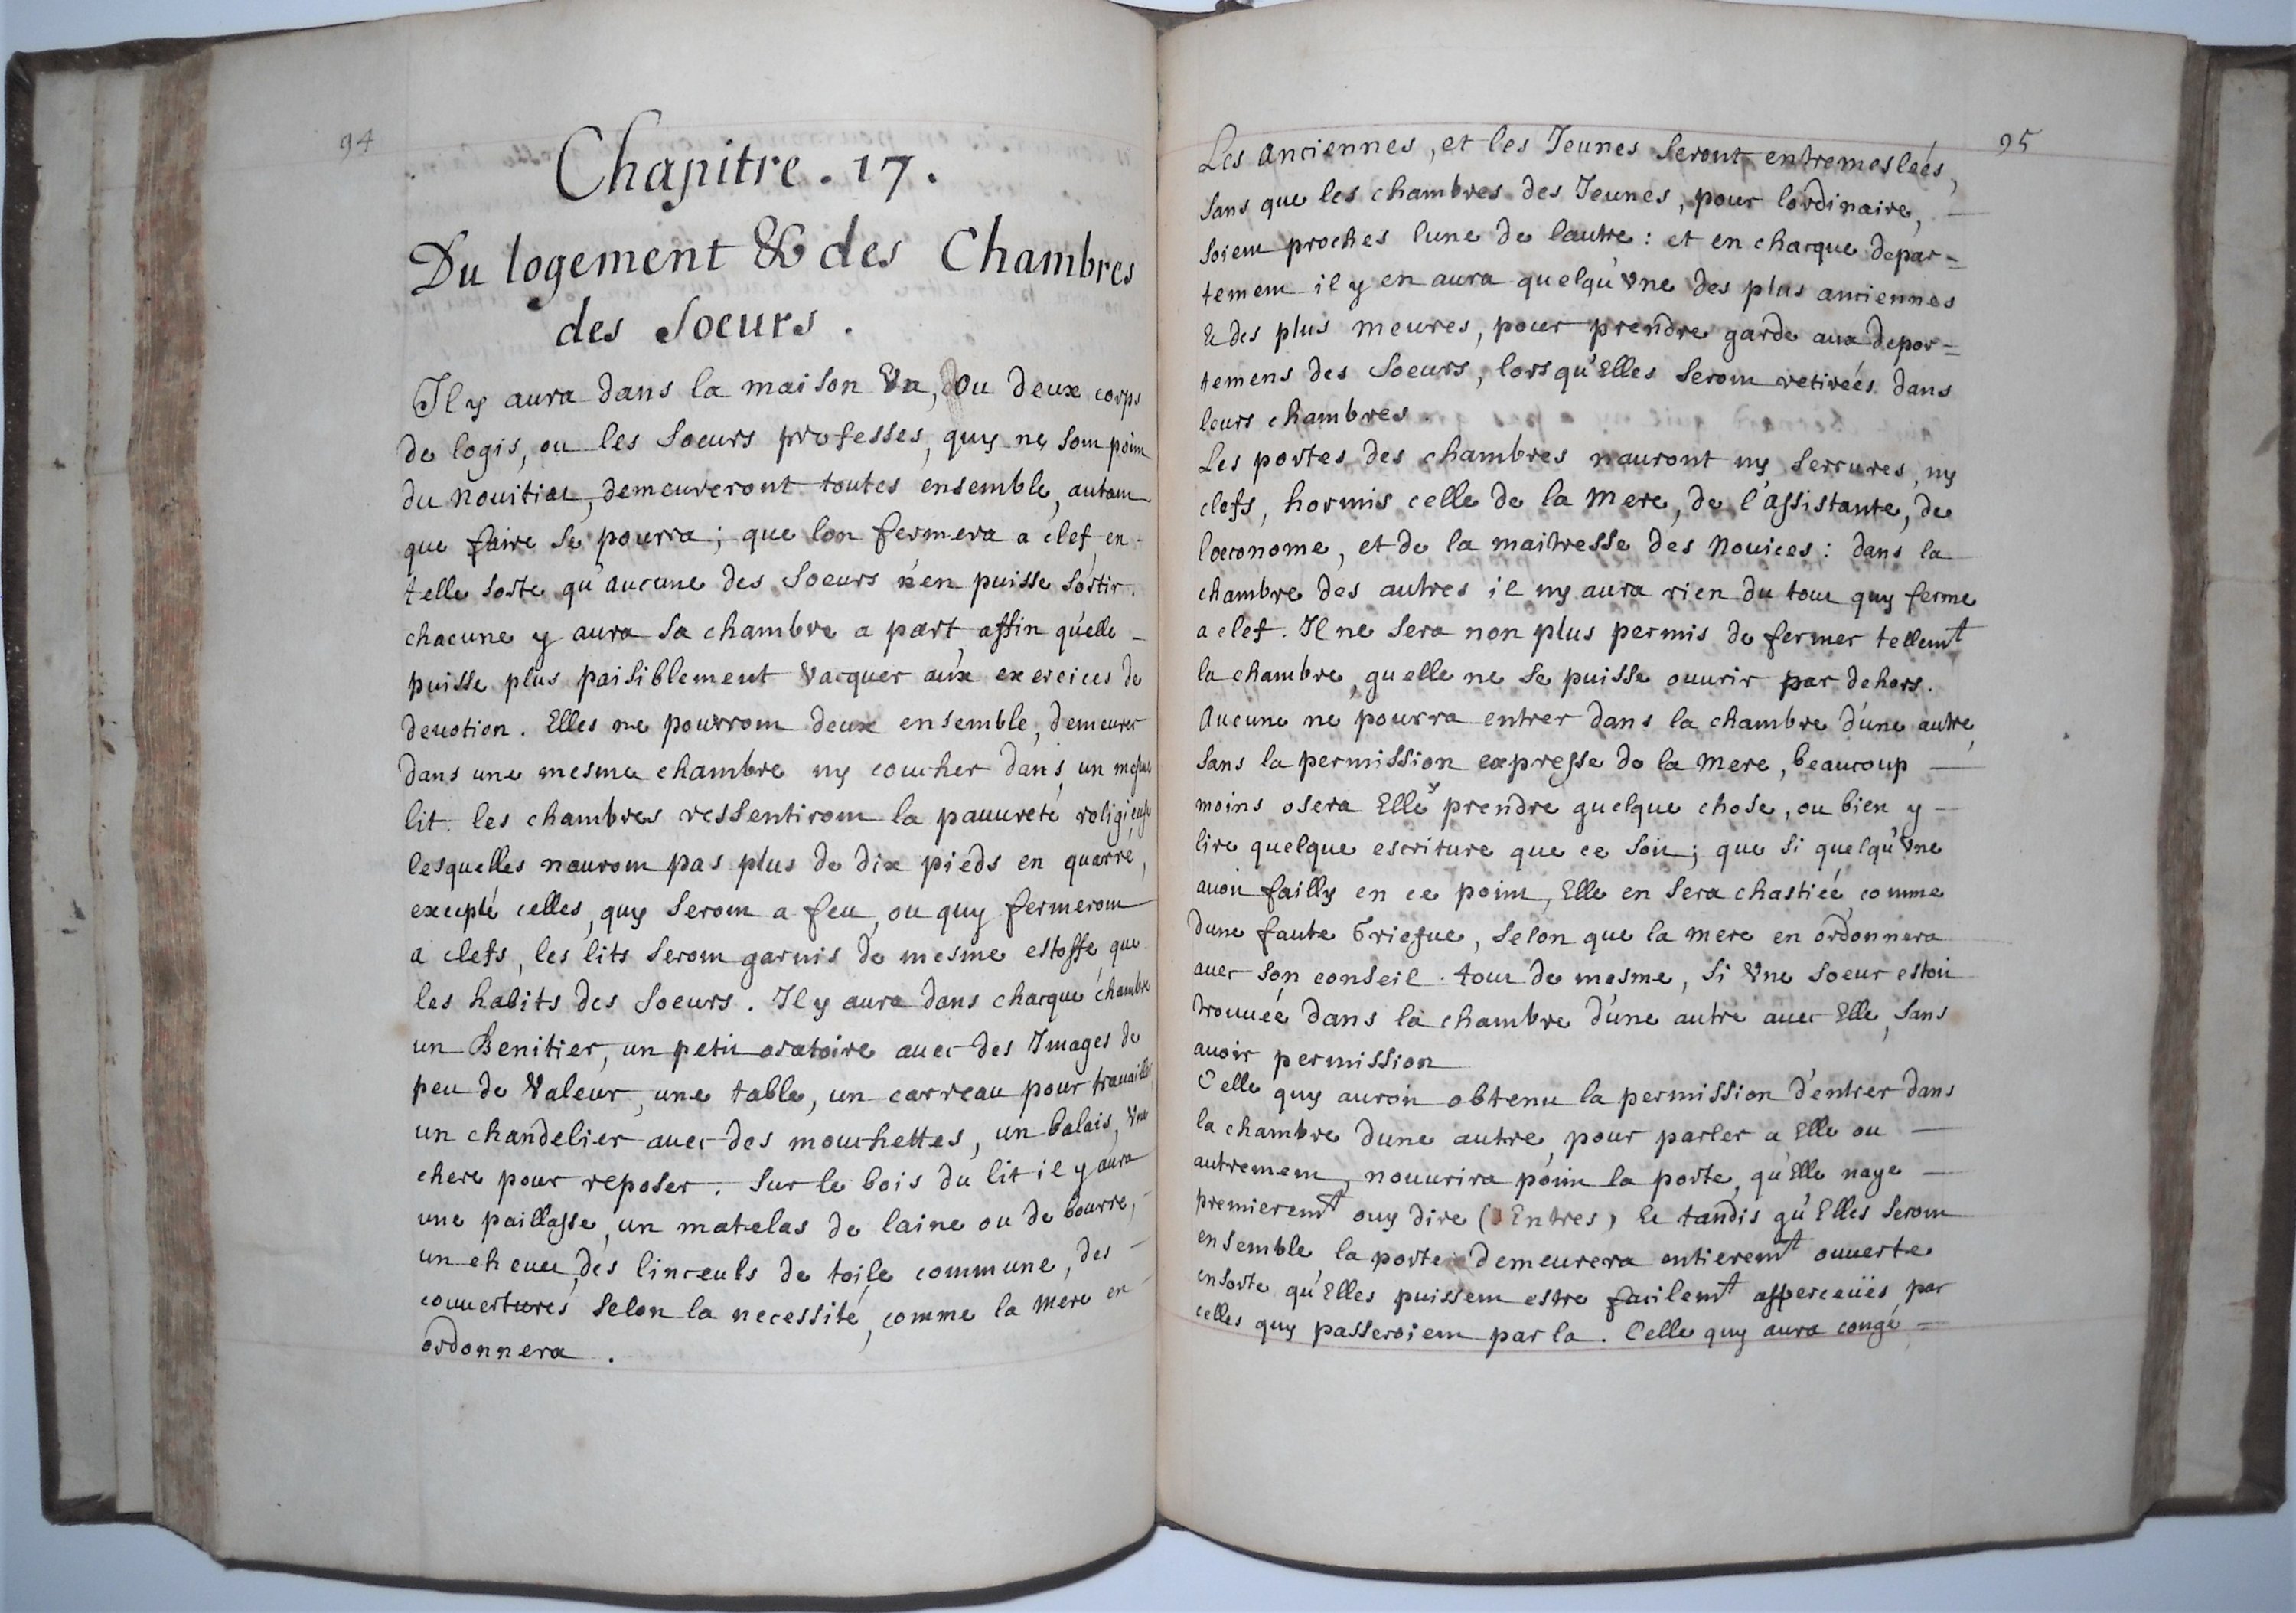 94
Chapitre . 17 .
Du logement & des Chambres
des Soeurs .
Il y aura dans la maison Vn, ou deux corps
de logis, ou les Soeurs professes, quy ne sont point
du nouitiat, demeureront toutes ensemble, autant
que faire se pourra ; que lon fermera a clef, en -
telle sorte qu'aucune des Soeurs n'en puisse sortir.
chacune y aura sa chambre a part, affin quelle -
puisse plus paisiblement vacquer aux exercices de
deuotion . Elles ne pourront deux ensemble, demeurer
dans une mesme chambre ny coucher dans un mesme
lit. les chambres ressentiront la pauureté religieuse
lesquelles nauront pas plus de dix pieds en quarré,
excepté celles, quy seront a feu, ou quy fermeront
a clefs, les lits seront garnis de mesme estoffe que
les habits des Soeurs . Il y aura dans chacque chambre
un Benitier, un petit oratoire auec des Images de
peu de Valeur, une table, un carreau pour trauailler,
un chandelier auec des mouchettes, un balais, Vne
chere pour reposer . Sur le bois du lit il y aura
une paillasse, un matelas de laine ou de bourre, -
un cheuet, des linceuls de toile commune, des -
couuertures selon la necessité, comme la Mere en -
ordonnera .
95
Les anciennes, et les Jeunes seront entremesleés,
sans que les chambres des Jeunes, pour lordinaire, -
soient proches lune de lautre : et en chacque depar=
tement il y en aura quelqu'Vne des plus anciennes
& des plus meures, pour prendre garde aux depor=
temens des Soeurs, lors qu'Elles seront retireés dans
leurs chambres .
Les portes des chambres nauront ny serrures, ny
clefs, hormis celle de la Mere, de l'assistante, de
l'oeconome, et de la maitresse des Nouices : dans la
chambre des autres il ny aura rien du tout quy ferme
a clef . Il ne sera non plus permis de fermer tellemt
la chambre, quelle ne se puisse ouurir par dehors .
Aucune ne pourra entrer dans la chambre d'une autre,
sans la permission expresse de la Mere, beaucoup -
moins osera Elle y prendre quelque chose, ou bien y -
lire quelque escriture que ce soit ; que si quelqu'Vne
auoit failly en ce point, Elle en sera chastieé comme
d'une faute Griefue, selon que la mere en ordonnera
auec son conseil . tout de mesme, si Vne Soeur estoit
trouueé dans la chambre d'une autre auec Elle, sans
auoir permission
Celle quy auroit obtenu la permission d'entrer dans
la chambre dune autre, pour parler a Elle ou -
autrement, n'ouurira point la porte, qu'Elle naye -
premieremt ouy dire (Entres) & tandis qu'Elles seront
ensemble, la porte demeurera entieremt ouuerte
ensorte qu'Elles puissent estre facilemt apperceües par
celles quy passeroient par la . Celle quy aura congé =